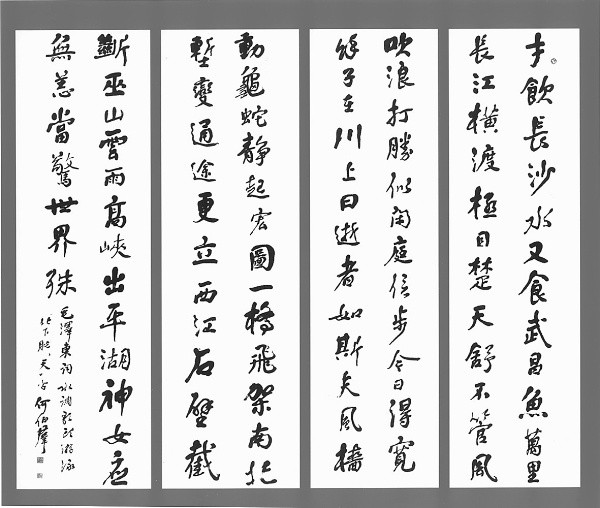 才飲長沙水又食武昌魚萬里
長江橫渡極目楚天舒不管風
吹浪打勝似閑庭信步今日得寬
餘子在川上曰逝者如斯夫風檣
動龜蛇靜起宏圖一橋飛架南北
塹變通途更立西江石壁截
斷巫山雲雨高峽出平湖神女應
無恙當驚世界殊
毛澤東詞水調歌頭游泳
北下脫天一字 何伯群